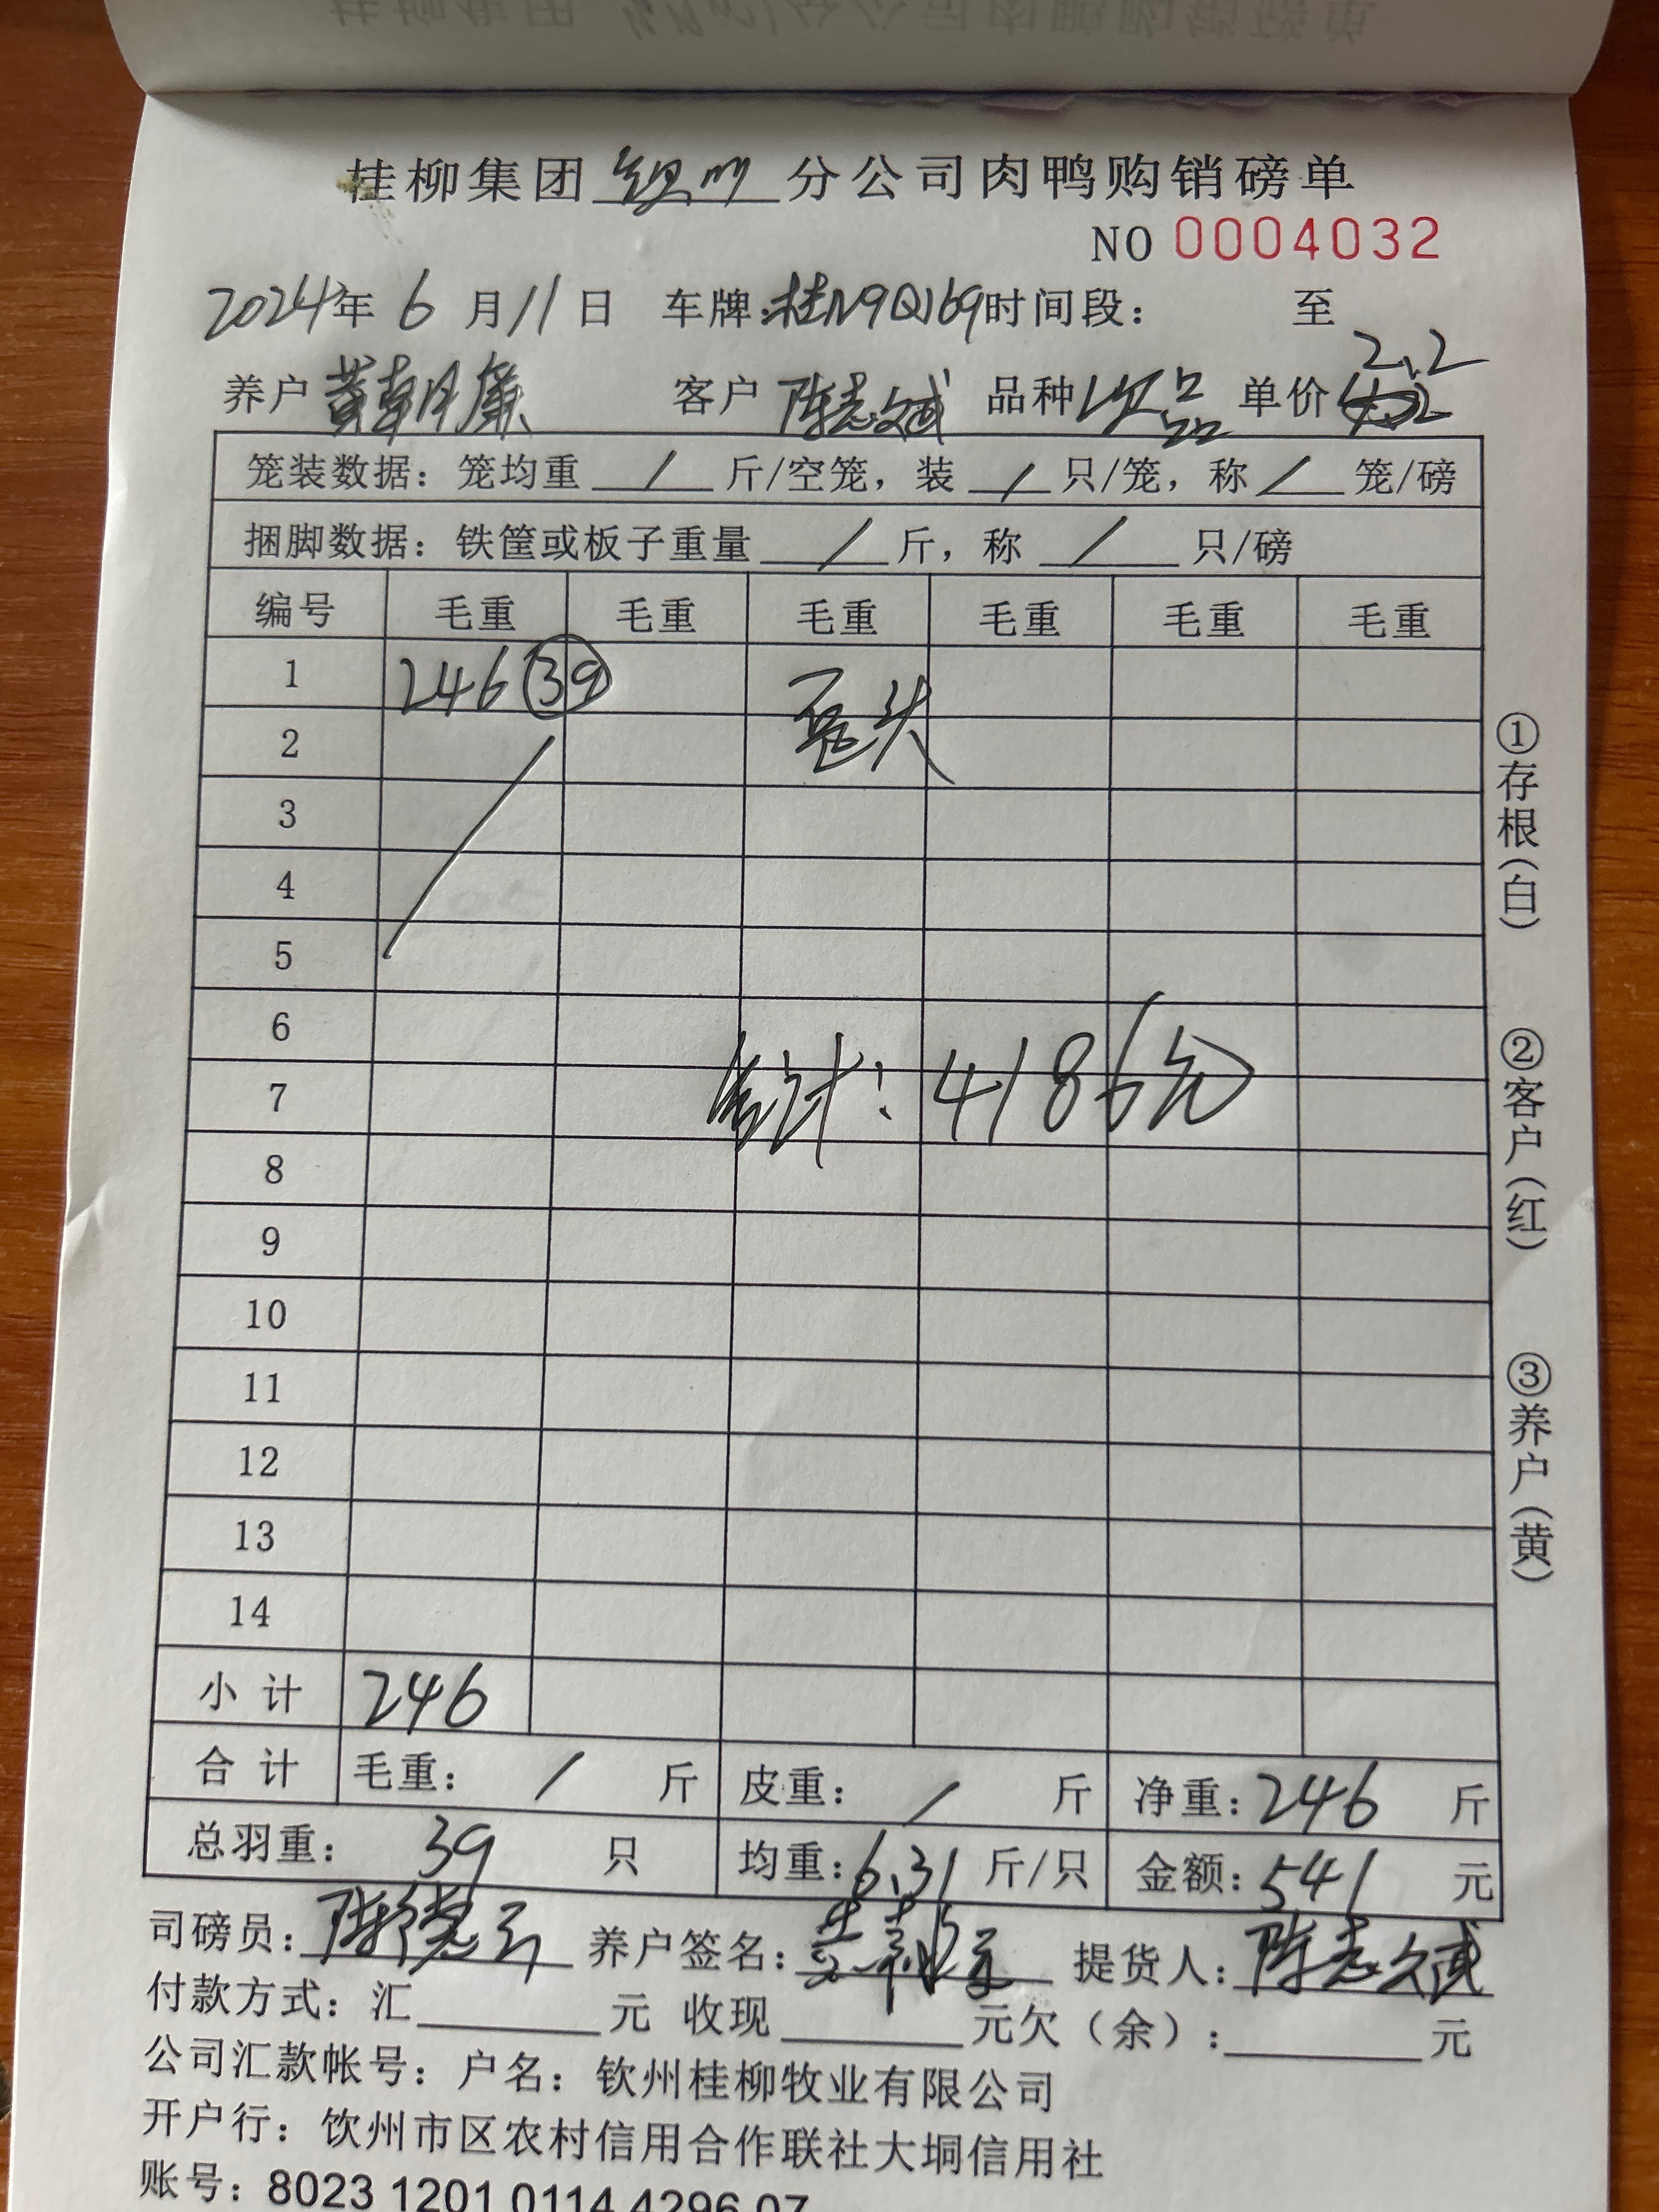 桂柳集团 钦州 分公司肉鸭购销磅单
NO 0004032
2024年 6 月 11 日 车牌:桂N9Q169 时间段: 至
2.2
养户 黄朝廉 客户 陈志斌 品种 次品 单价
笼装数据:笼均重 / 斤/空笼,装 / 只/笼,称 / 笼/磅
捆脚数据:铁筐或板子重量 / 斤,称 / 只/磅
编号 毛重 毛重 毛重 毛重 毛重 毛重
1 246 39 歪头
2
3
4
5
6
7 合计:4186元
8
9
10
11
12
13
14
小计 246
合计 毛重: / 斤 皮重: / 斤 净重:246 斤
总羽重: 39 只 均重:6.31 斤/只 金额:541 元
司磅员: 养户签名: 提货人:陈志斌
付款方式:汇 元 收现 元欠(余): 元
公司汇款帐号:户名:钦州桂柳牧业有限公司
开户行:饮州市区农村信用合作联社大垌信用社
账号:8023 1201 0114 4296 07
①存根(白)
②客户(红)
③养户(黄)